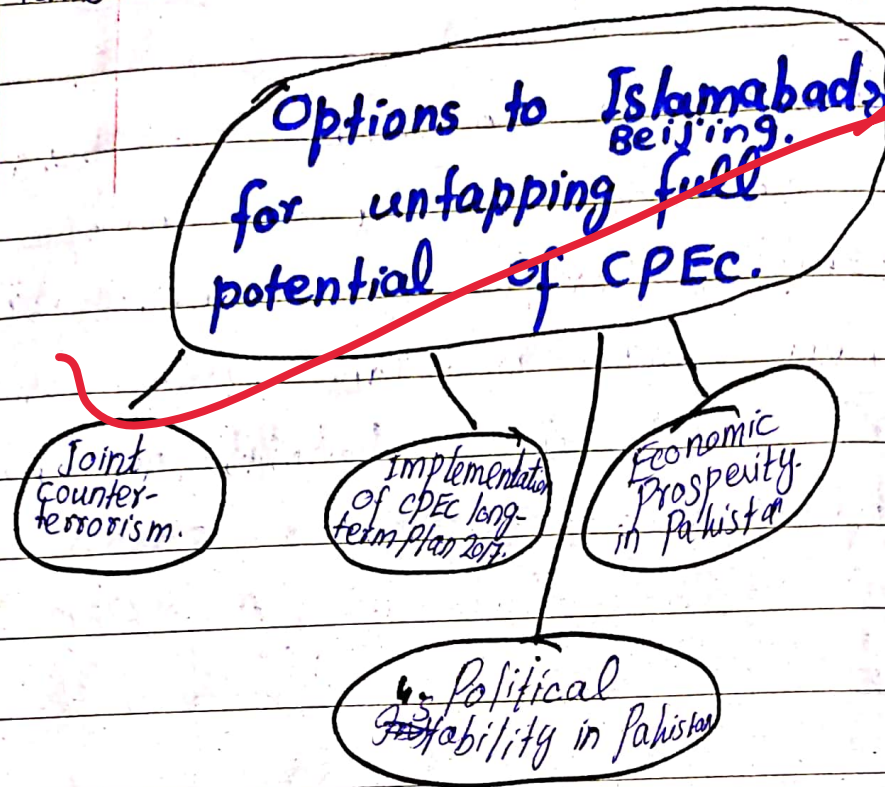 Options to Islamabad &
Beijing.
for untapping full
potential of CPEC.
Joint
Counter-
terrorism.
Implementation
of CPEC long-
term Plan 2017.
Economic
Prosperity
in Pakistan
Political
Stability in Pakistan